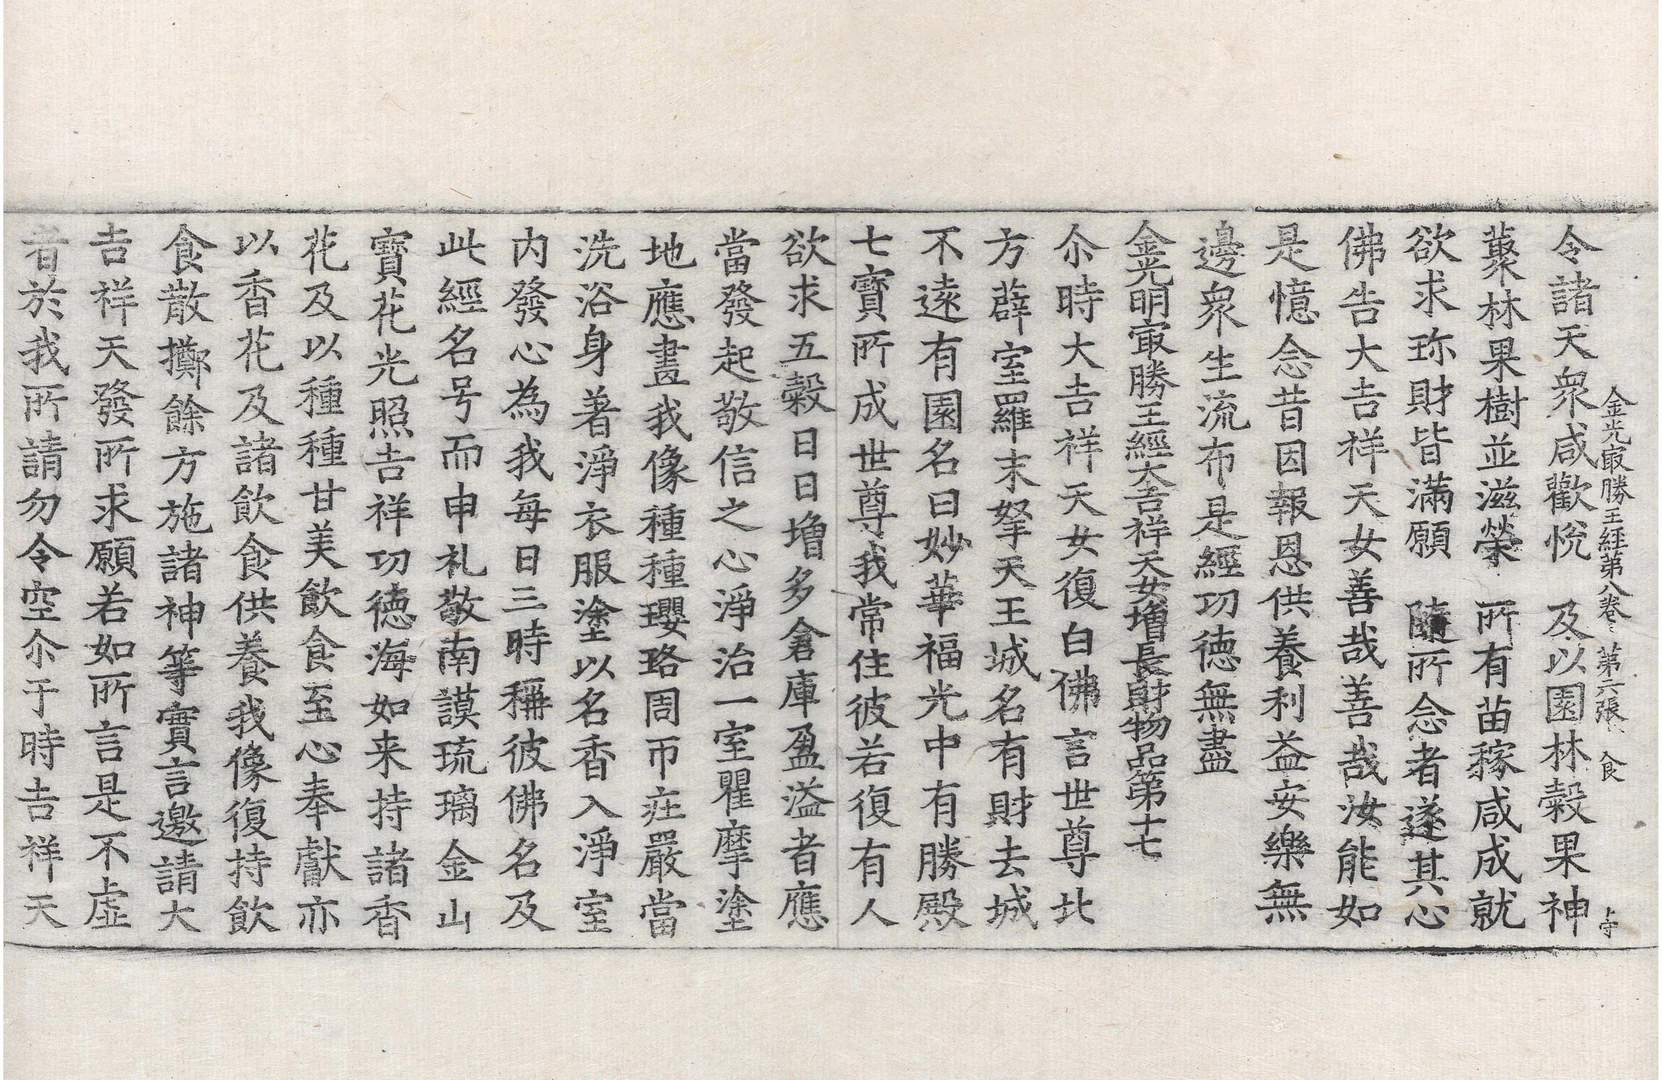 金光㝡勝王經第八卷 第六張 食
令諸天衆咸歡悅　及以園林穀果神
藂林果樹並滋榮　所有苗稼咸成就
欲求珎財皆滿願　隨所念者遂其心
佛告大吉祥天女善哉善哉汝能如
是憶念昔因報恩供養利益安樂無
邊衆生流布是經功德無盡
金光明㝡勝王經大吉祥天女增長財物品第十七
尒時大吉祥天女復白佛言世尊北
方薜室羅末拏天王城名有財去城
不遠有園名曰妙華福光中有勝殿
七寶所成世尊我常住彼若復有人
欲求五穀日日增多倉庫盈溢者應
當發起敬信之心淨治一室瞿摩塗
地應畫我像種種瓔珞周帀莊嚴當
洗浴身著淨衣服塗以名香入淨室
内發心為我每日三時稱彼佛名及
此經名号而申礼敬南謨琉璃金山
寶花光照吉祥功德海如来持諸香
花及以種種甘美飲食至心奉獻亦
以香花及諸飲食供養我像復持飲
食散擲餘方施諸神等實言邀請大
吉祥天發所求願若如所言是不虛
者於我所請勿令空尒于時吉祥天